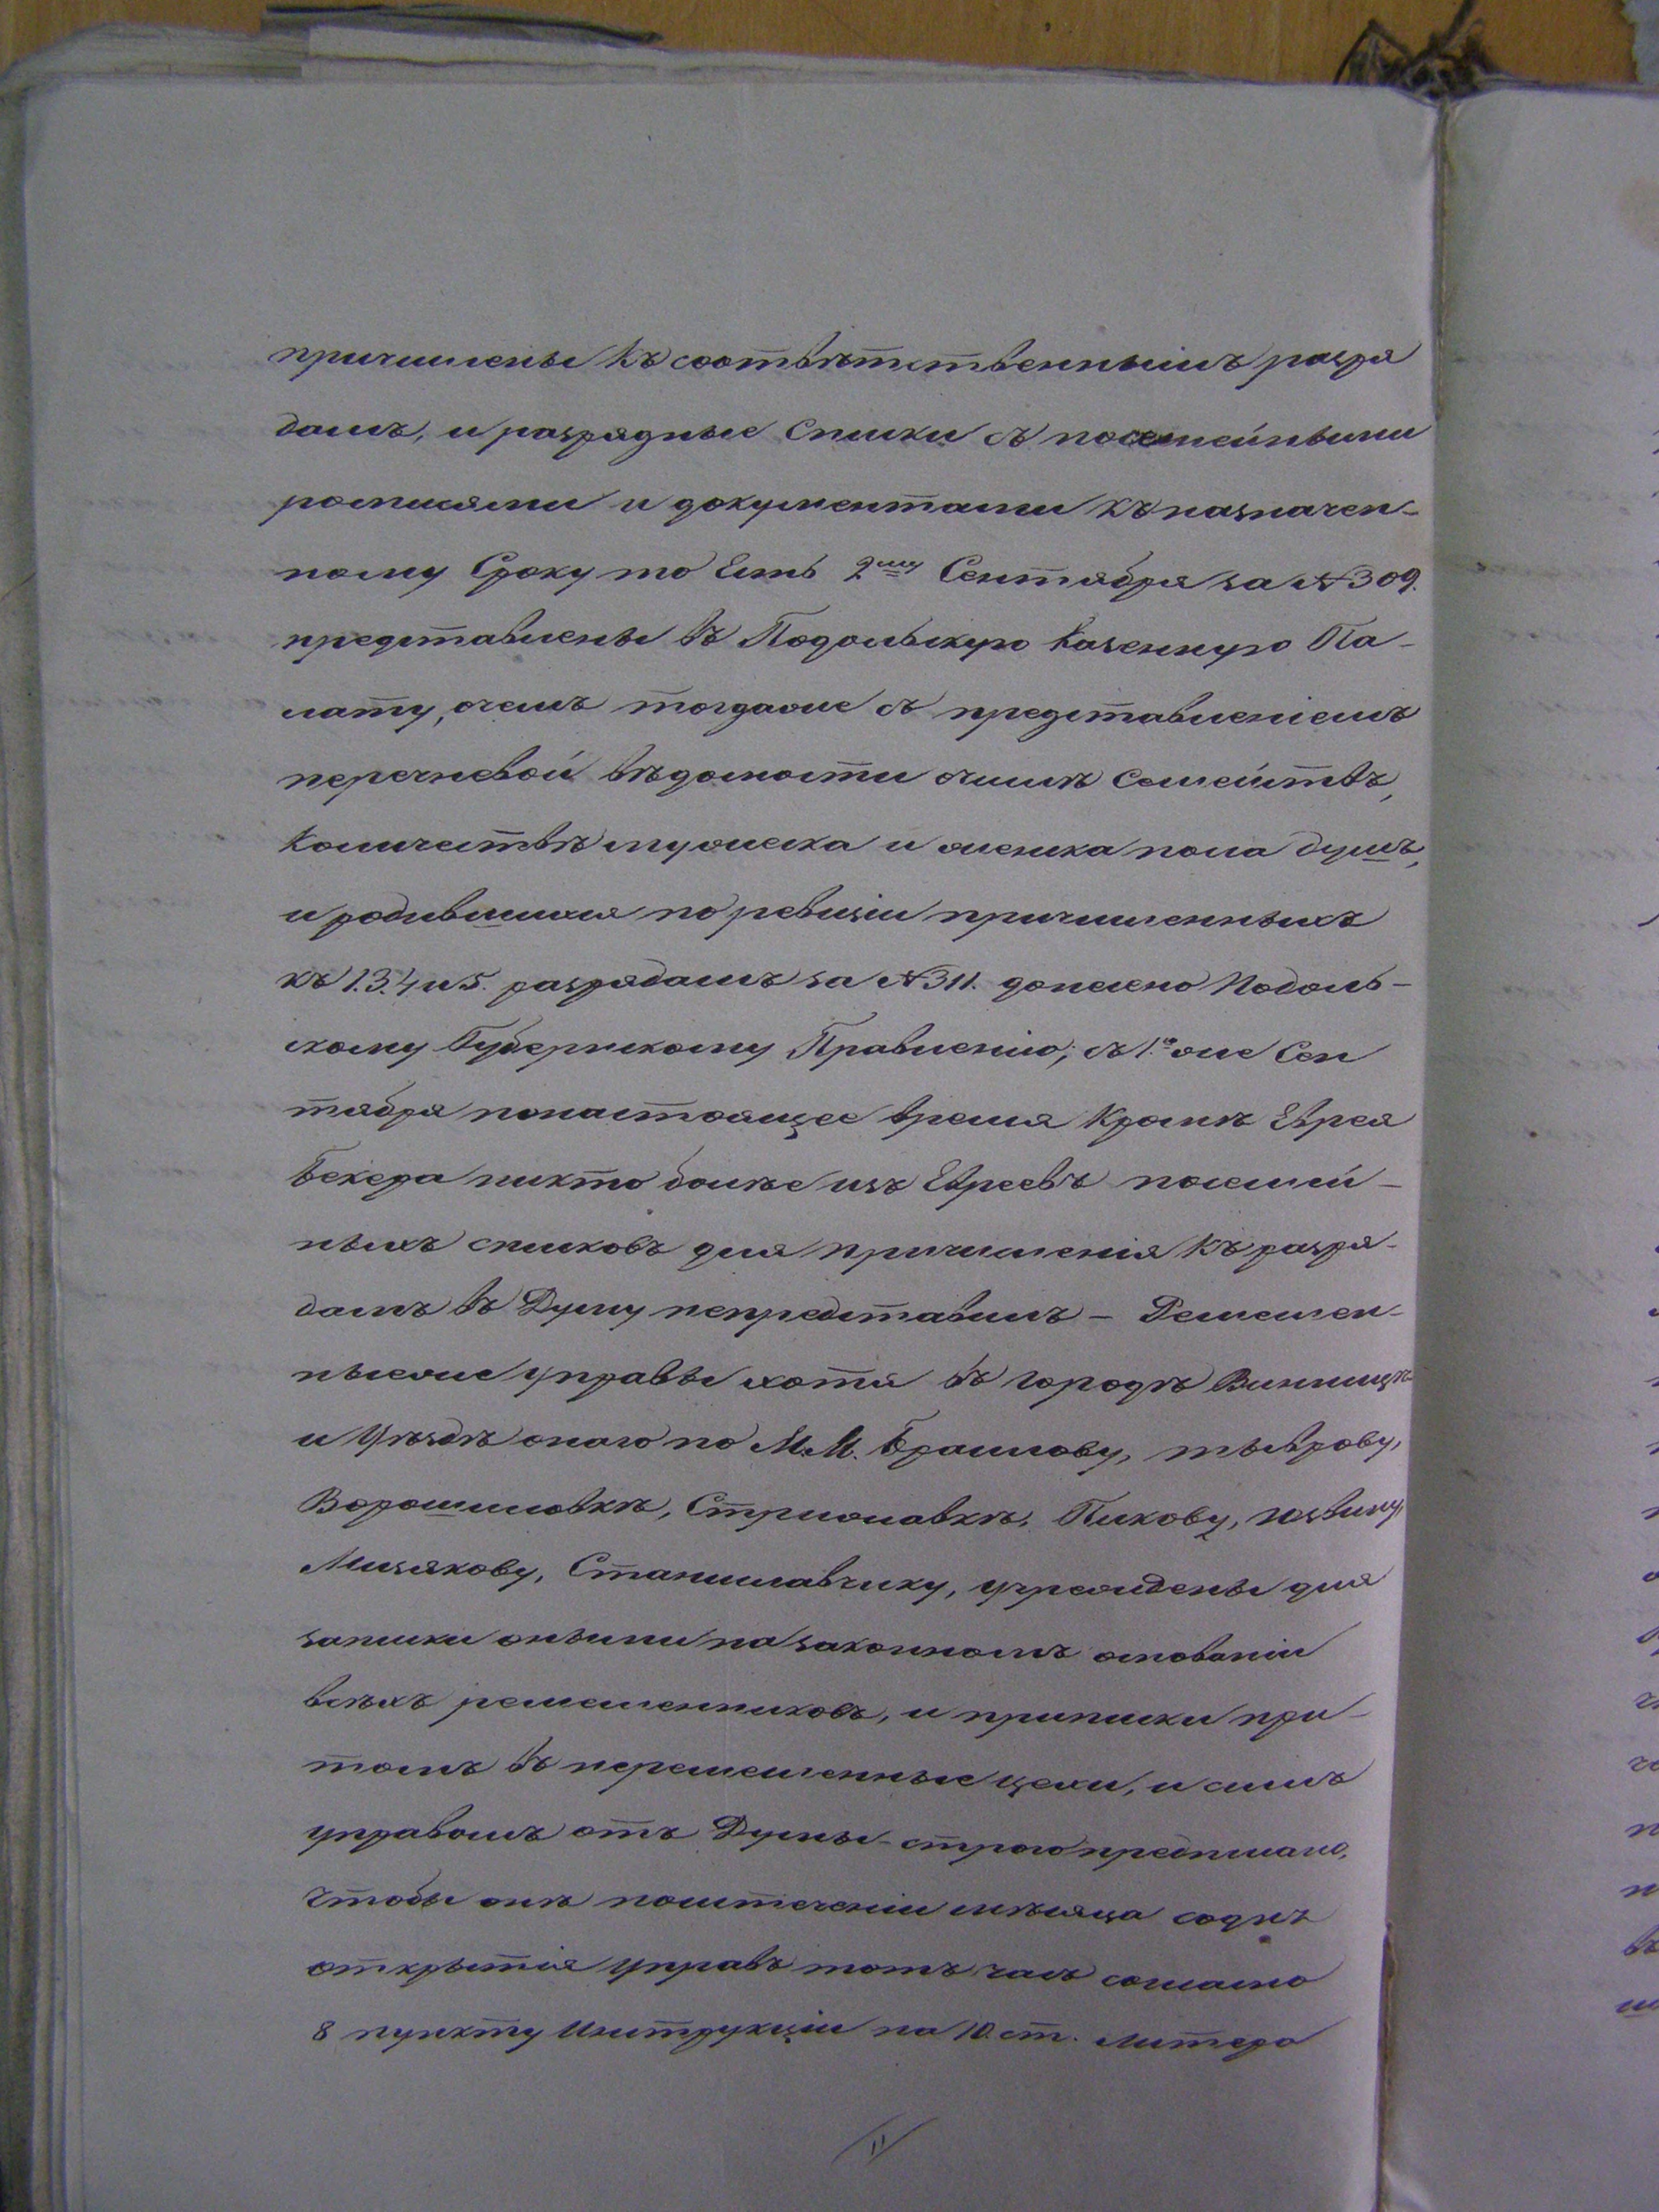 причислены къ соотвѣтственнымъ разря
дамъ, и разрядные списки съ посемейными
росписями и документами къ назначен-
ному сроку то есть 2му Сентября за № 309.
представлены въ Подольскую Казенную Па-
лату, очемъ тогдаже съ представленіемъ
перечневой вѣдомости очислѣ семействъ,
количествѣ мужеска и женска пола душъ,
и родившихся по ревизіи причисленныхъ
къ 1.3.4 и 5. разрядамъ за № 311. донесено Подоль-
скому Губернскому Правленію; съ 1го же Сен
тября понастоящее время Кромѣ Еврея
Бекера никто болѣе изъ Евреевъ посемей-
ныхъ списковъ для причисленія къ разря-
дамъ въ Думу непредставилъ – Ремеслен-
ныеже управы хотя въ городѣ Винницѣ
и Уѣздѣ онаго по М.М. Браилову, тыврову,
Ворошиловкѣ, Стрижавкѣ, Пикову, Юзвину,
Мизякову, Станиславчику, учреждены для
записки оными на законномъ основаніи
всѣхъ ремесленниковъ, и приписки при-
томъ въ неремесленные цехи, и симъ
управамъ отъ Думы строго предписано,
чтобы онѣ поистеченіи мѣсяца содня
открытія управъ тотъ часъ согласно
8 пункту Инструкціи на 10. ст. литера
11